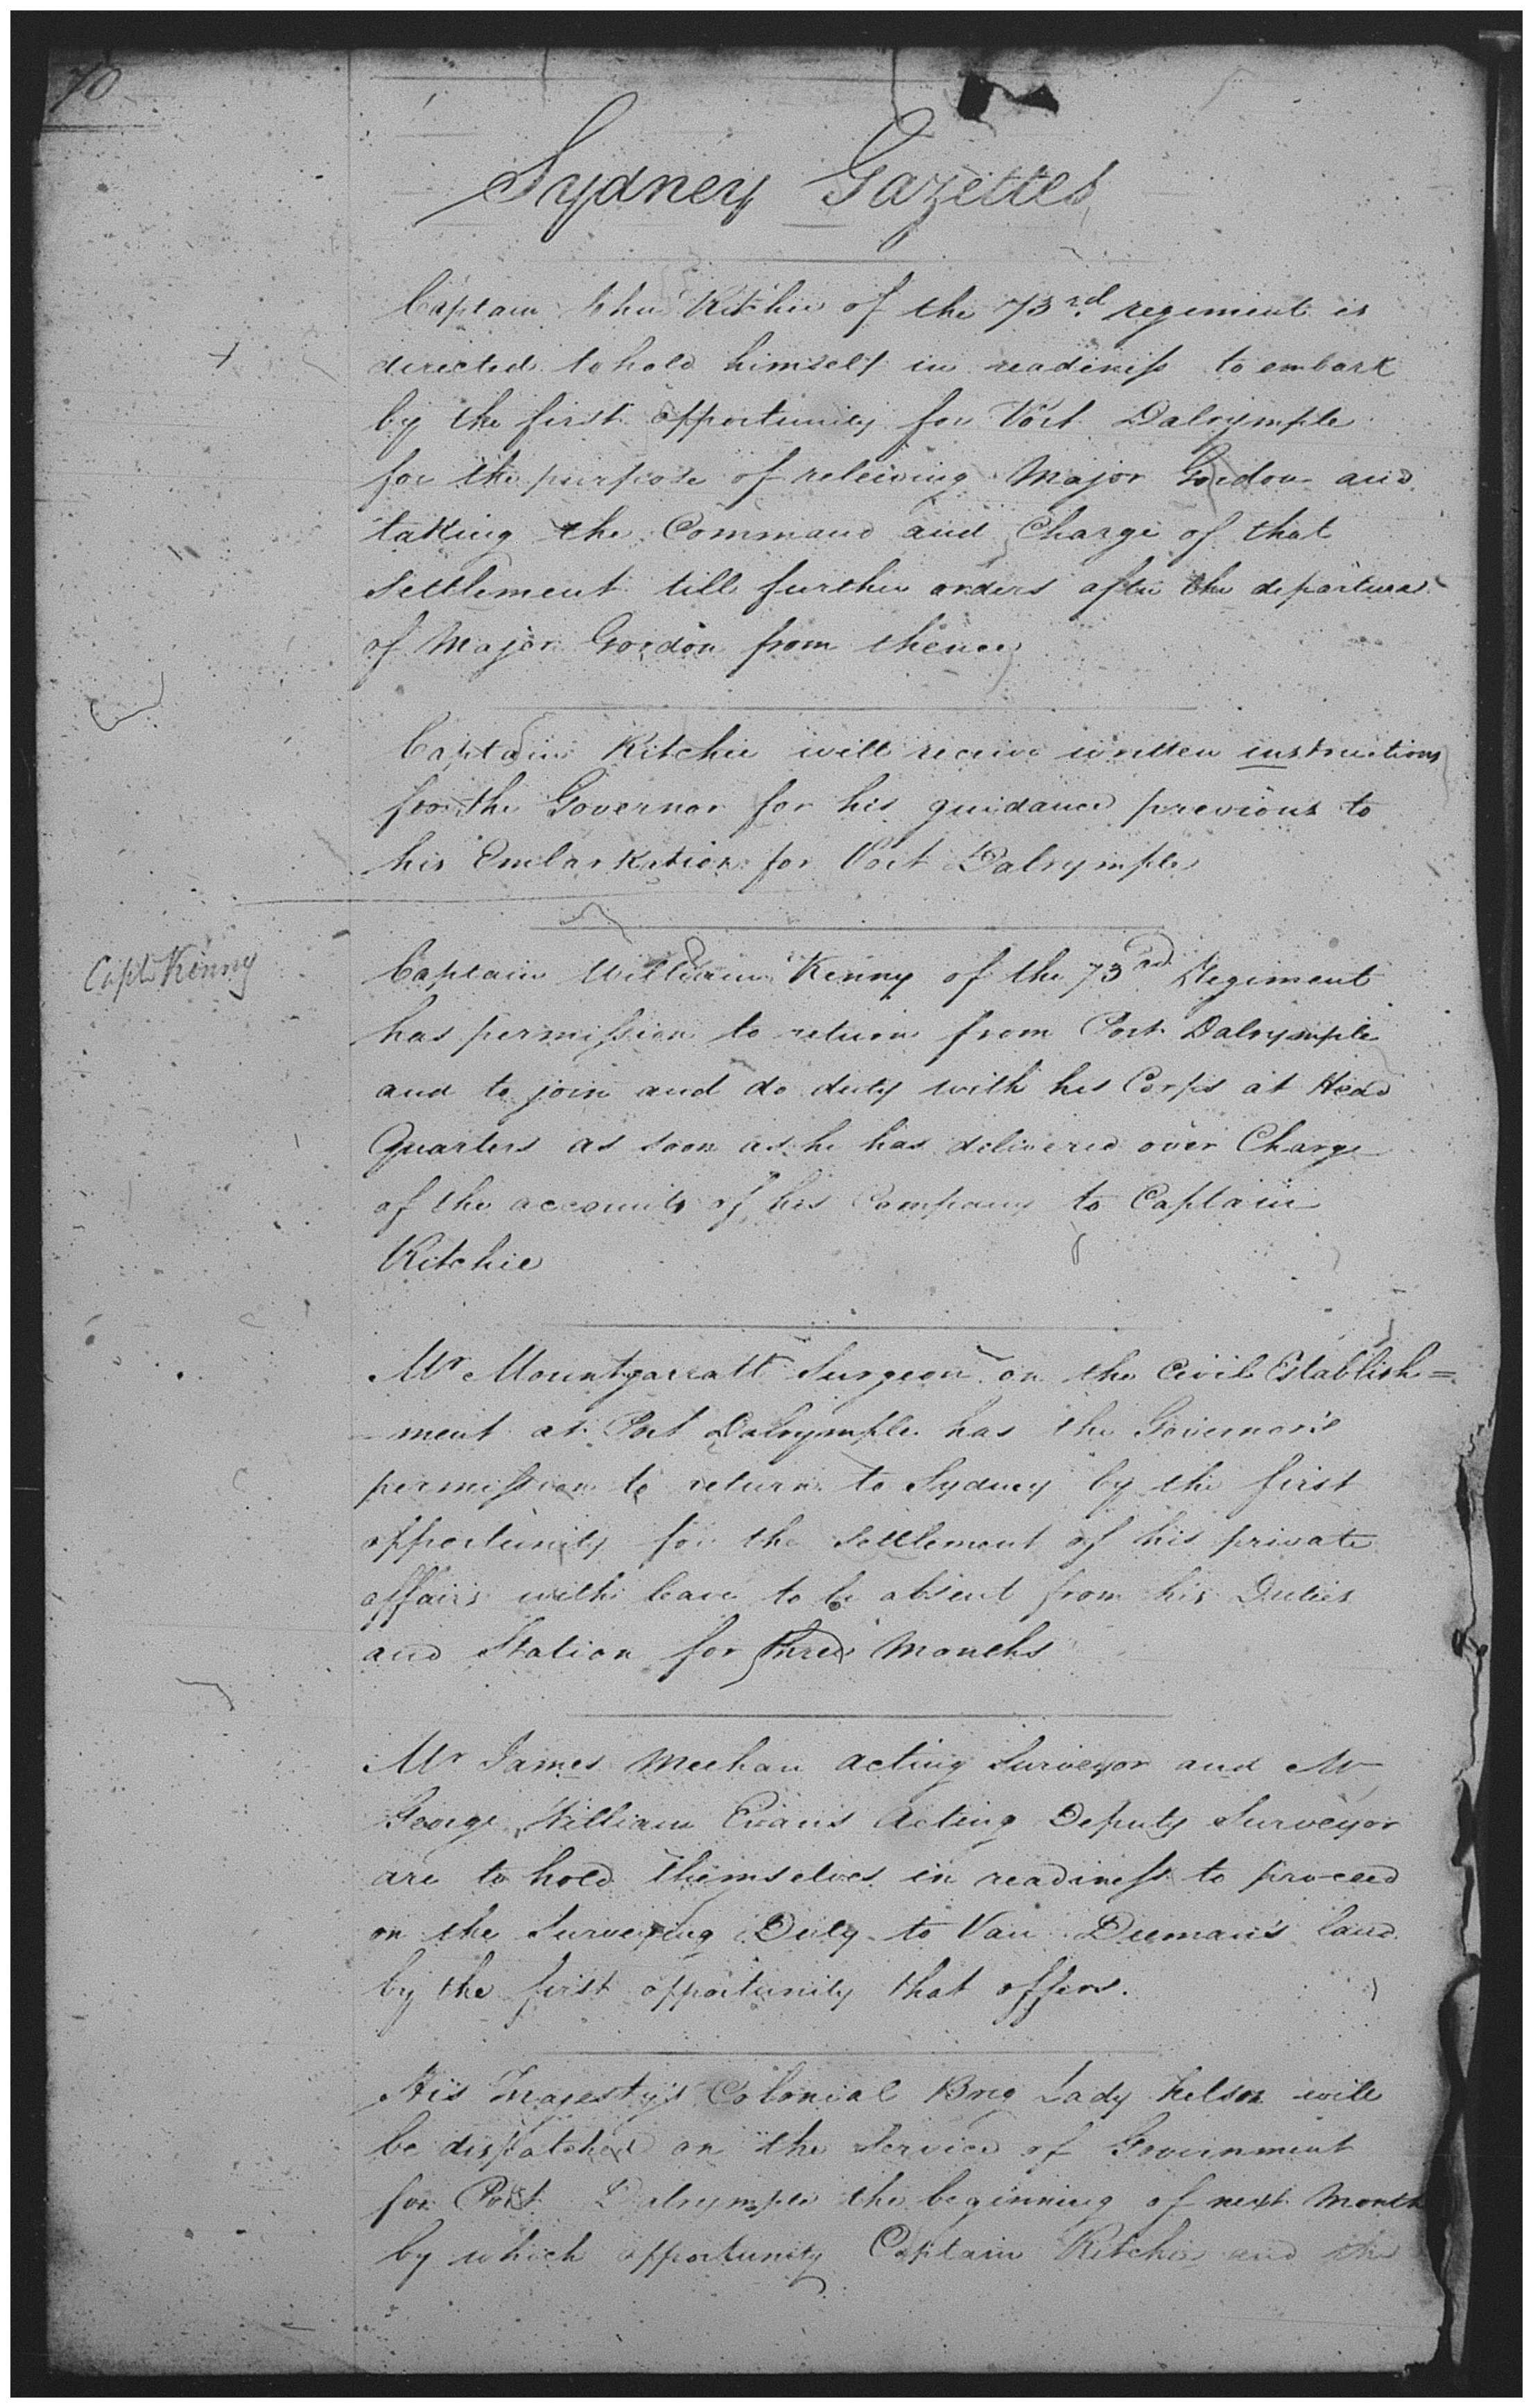 70
Sydney Gazettes
Captain Jhn Ritchie of the 73rd regiment is
directed to hold himself in readiness to embark
by the first opportunity for Port Dalrymple
for the purpose of releiving Major Gordon and
taking the Command and Charge of that
Settlement till further orders after the departure
of Major Gordon from thence
Captain Ritchie will receive written instructions
from the Governor for his guidance previous to
his Embarkation for Port Dalrymple
Capt Kenny
Captain William Kenny of the 73rd Regiment
has permission to return from Port Dalrymple
and to join and do duty with his Corps at Head
Quarters as soon as he has delivered over Charge
of the accounts of his Company to Captain
Ritchie
Mr Mountgarratt Surgeon on the Civil Establish=
ment at Port Dalrymple has the Governor's
permission to return to Sydney by the first
opportunity for the Settlement of his private
affairs with leave to be absent from his Duties
and Station for three Months
Mr James Meehan acting Surveyor and Mr
George William Evans Acting Deputy Surveyor
are to hold themselves in readiness to proceed
on the Surveying Duty to Van Dieman's land
by the first opportunity that offers.
His Majesty's Colonial Brig Lady Nelson will
be dispatched on the Service of Government
for Port Dalrymple the beginning of next Month
by which opportunity Captain Ritchie and the